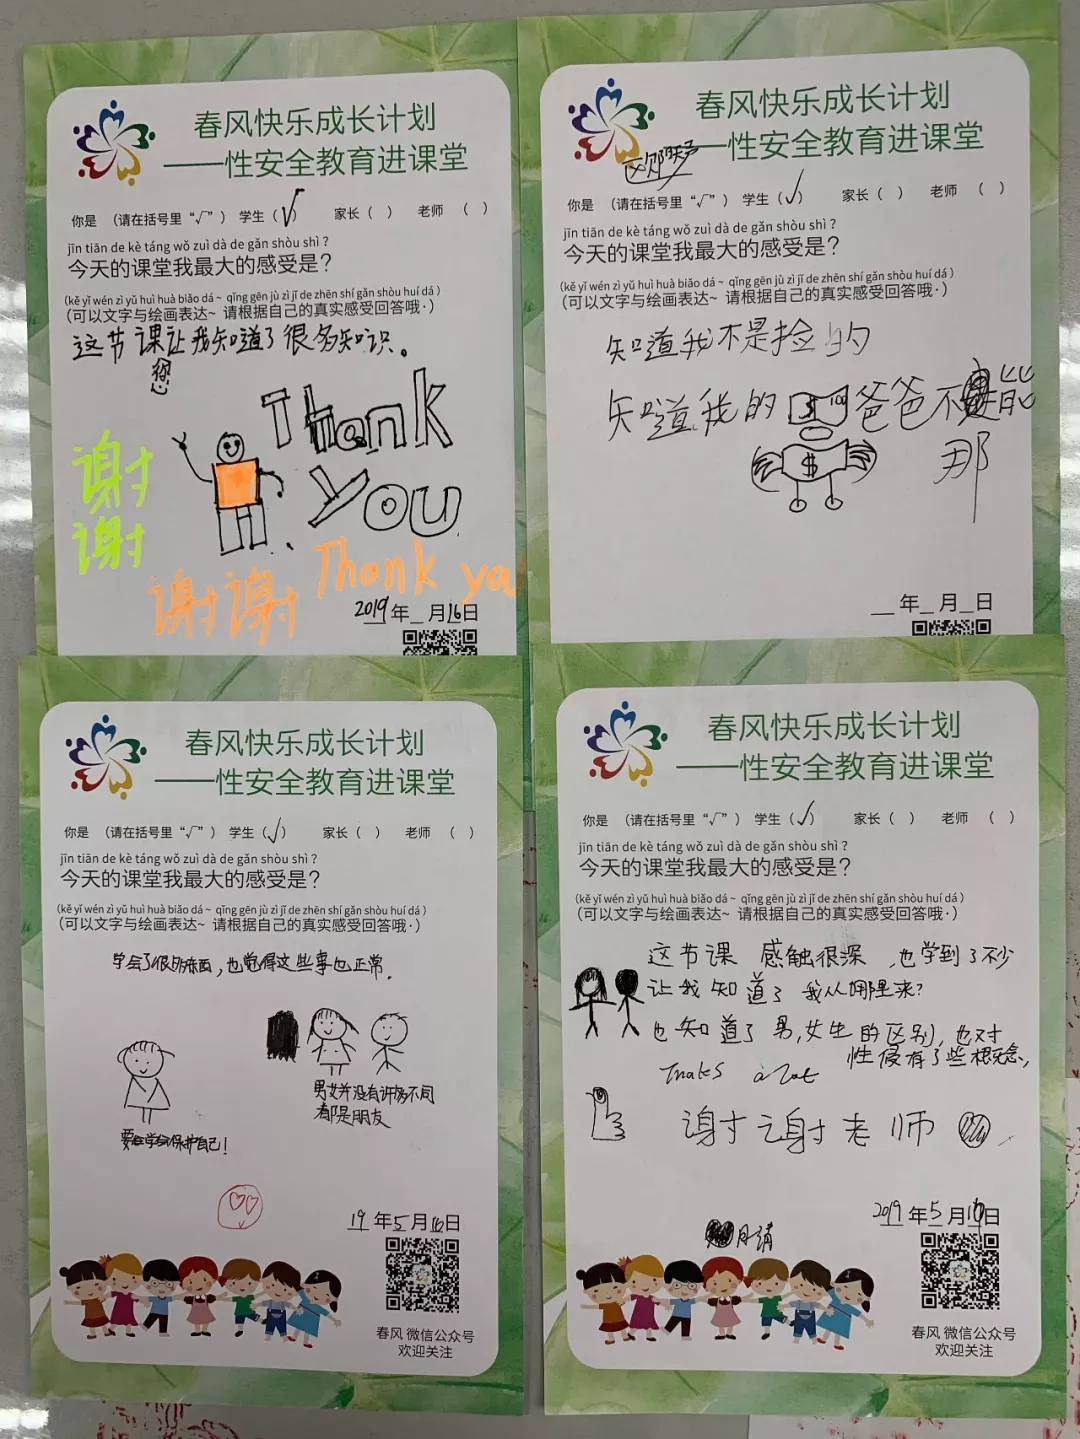 春风快乐成长计划
——性安全教育进课堂
你是 （请在括号里“√”） 学生（√） 家长（ ） 老师 （ ）
jīn tiān de kè táng wǒ zuì dà de gǎn shòu shì？
今天的课堂我最大的感受是？
（kě yǐ wén zì yǔ huì huà biǎo dá ~ qǐng gēn jù zì jǐ de zhēn shí gǎn shòu huí dá）
（可以文字与绘画表达~ 请根据自己的真实感受回答哦·）
这节课让我知道了很多知识。
您
Thank
you
谢
谢
谢谢 Thank
2019年_月16日
春风快乐成长计划
——性安全教育进课堂
你是 （请在括号里“√”） 学生（√） 家长（ ） 老师 （ ）
jīn tiān de kè táng wǒ zuì dà de gǎn shòu shì？
今天的课堂我最大的感受是？
（kě yǐ wén zì yǔ huì huà biǎo dá ~ qǐng gēn jù zì jǐ de zhēn shí gǎn shòu huí dá）
（可以文字与绘画表达~ 请根据自己的真实感受回答哦·）
知道我不是捡的
知道我的 爸爸不能
那
$
__年_月_日
春风快乐成长计划
——性安全教育进课堂
你是 （请在括号里“√”） 学生（√） 家长（ ） 老师 （ ）
jīn tiān de kè táng wǒ zuì dà de gǎn shòu shì？
今天的课堂我最大的感受是？
（kě yǐ wén zì yǔ huì huà biǎo dá ~ qǐng gēn jù zì jǐ de zhēn shí gǎn shòu huí dá）
（可以文字与绘画表达~ 请根据自己的真实感受回答哦·）
学会了很多东西，也觉得这些事也正常.
男女并没有许多不同
都是朋友
要学会保护自己！
19年5月16日
春风 微信公众号
欢迎关注
春风快乐成长计划
——性安全教育进课堂
你是 （请在括号里“√”） 学生（√） 家长（ ） 老师 （ ）
jīn tiān de kè táng wǒ zuì dà de gǎn shòu shì？
今天的课堂我最大的感受是？
（kě yǐ wén zì yǔ huì huà biǎo dá ~ qǐng gēn jù zì jǐ de zhēn shí gǎn shòu huí dá）
（可以文字与绘画表达~ 请根据自己的真实感受回答哦·）
这节课 感触很深 ，也学到了不少
让我知道了 我从哪里来？
也知道了男,女生的区别，也对
性侵有了些概念，
a lot
谢谢老师
2019年5月16日
春风 微信公众号
欢迎关注